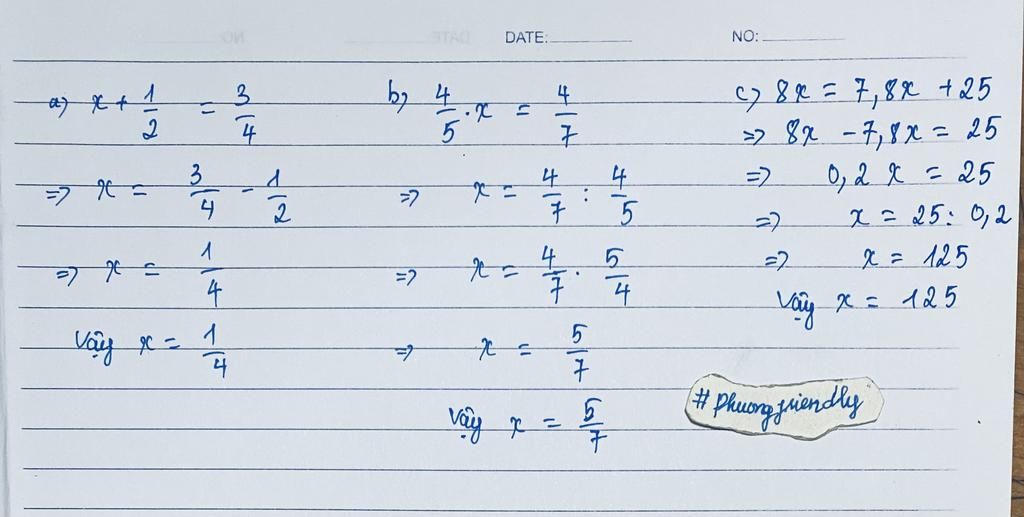 DATE: NO:
a) x + 1/2 = 3/4
=> x = 3/4 - 1/2
=> x = 1/4
Vậy x = 1/4
b) 4/5 . x = 4/7
=> x = 4/7 : 4/5
=> x = 4/7 . 5/4
=> x = 5/7
Vậy x = 5/7
c) 8x = 7,8x + 25
=> 8x - 7,8x = 25
=> 0,2 x = 25
=> x = 25 : 0,2
=> x = 125
Vậy x = 125
#phuongfriendly